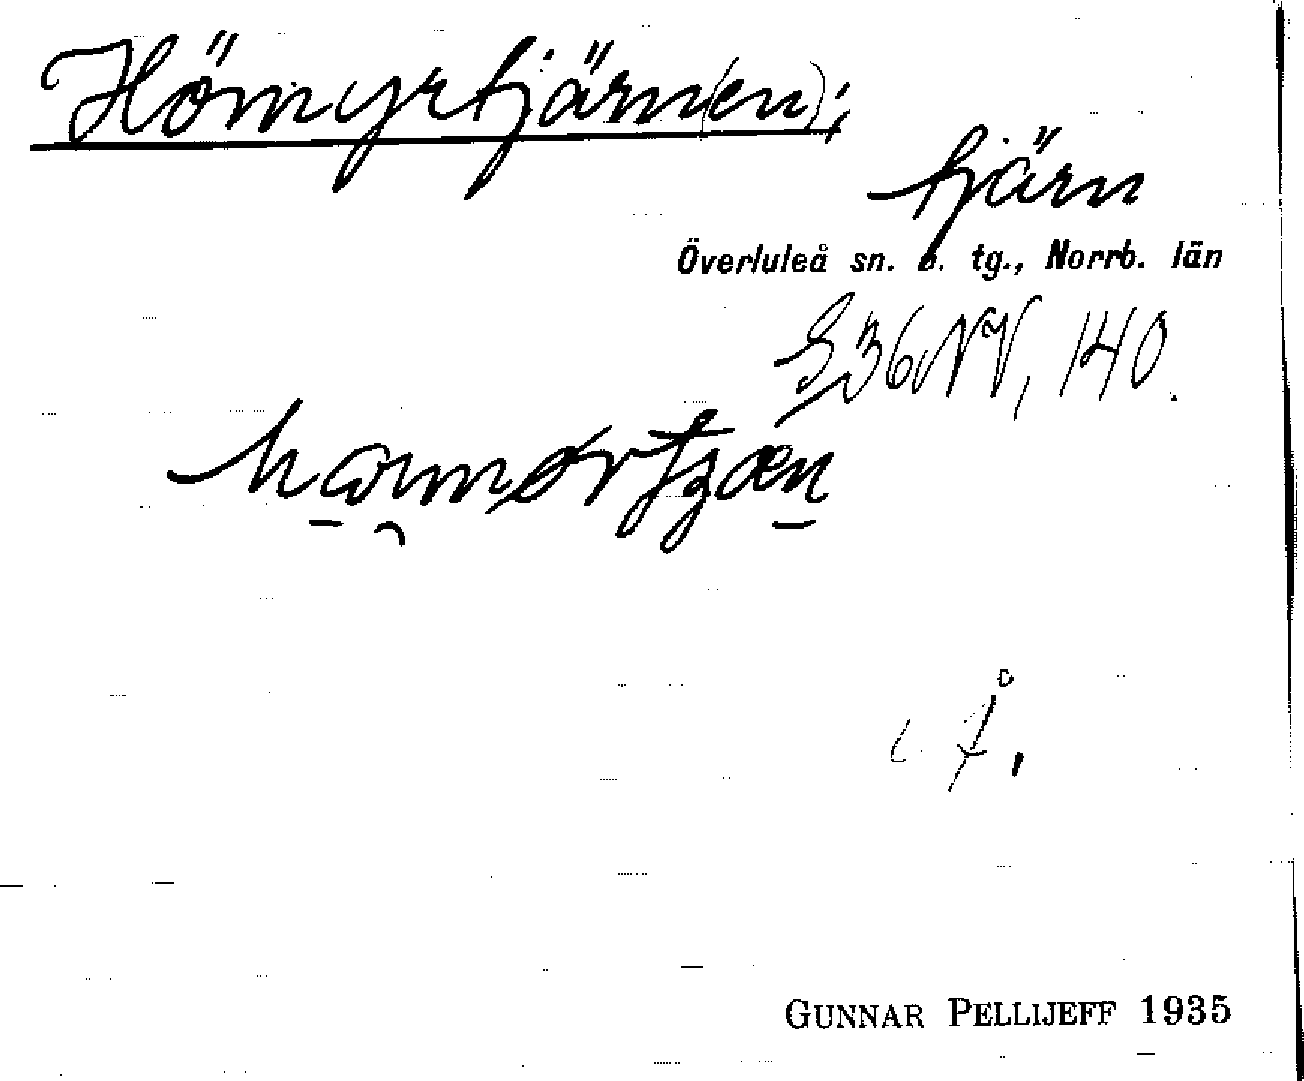 Hömyrtjärn(en);
tjärn
Överluleå sn. o. tg., Norrb. län
S36NV, 140.
GUNNAR PELLIJEFF 1935